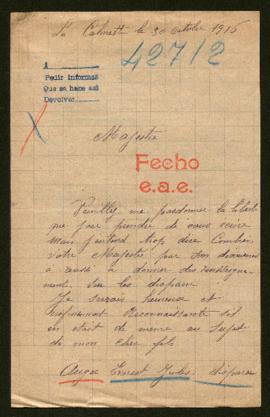 La Calmette le 30 octobre 1916
42712
A
Pedir informes
Que se hace así
Devolver
Majestée
Fecho
e.a.e.
Veuillez me pardonner la liberté
que je prendre de vous
Mais j'entend trop dire Combien
Votre Majestée par son
a réussi à donner des
sur les disparu
Je serais heureux et
Reconnaissante
en était de même au Sujet
de mon cher fils
Ernest Jules disparu